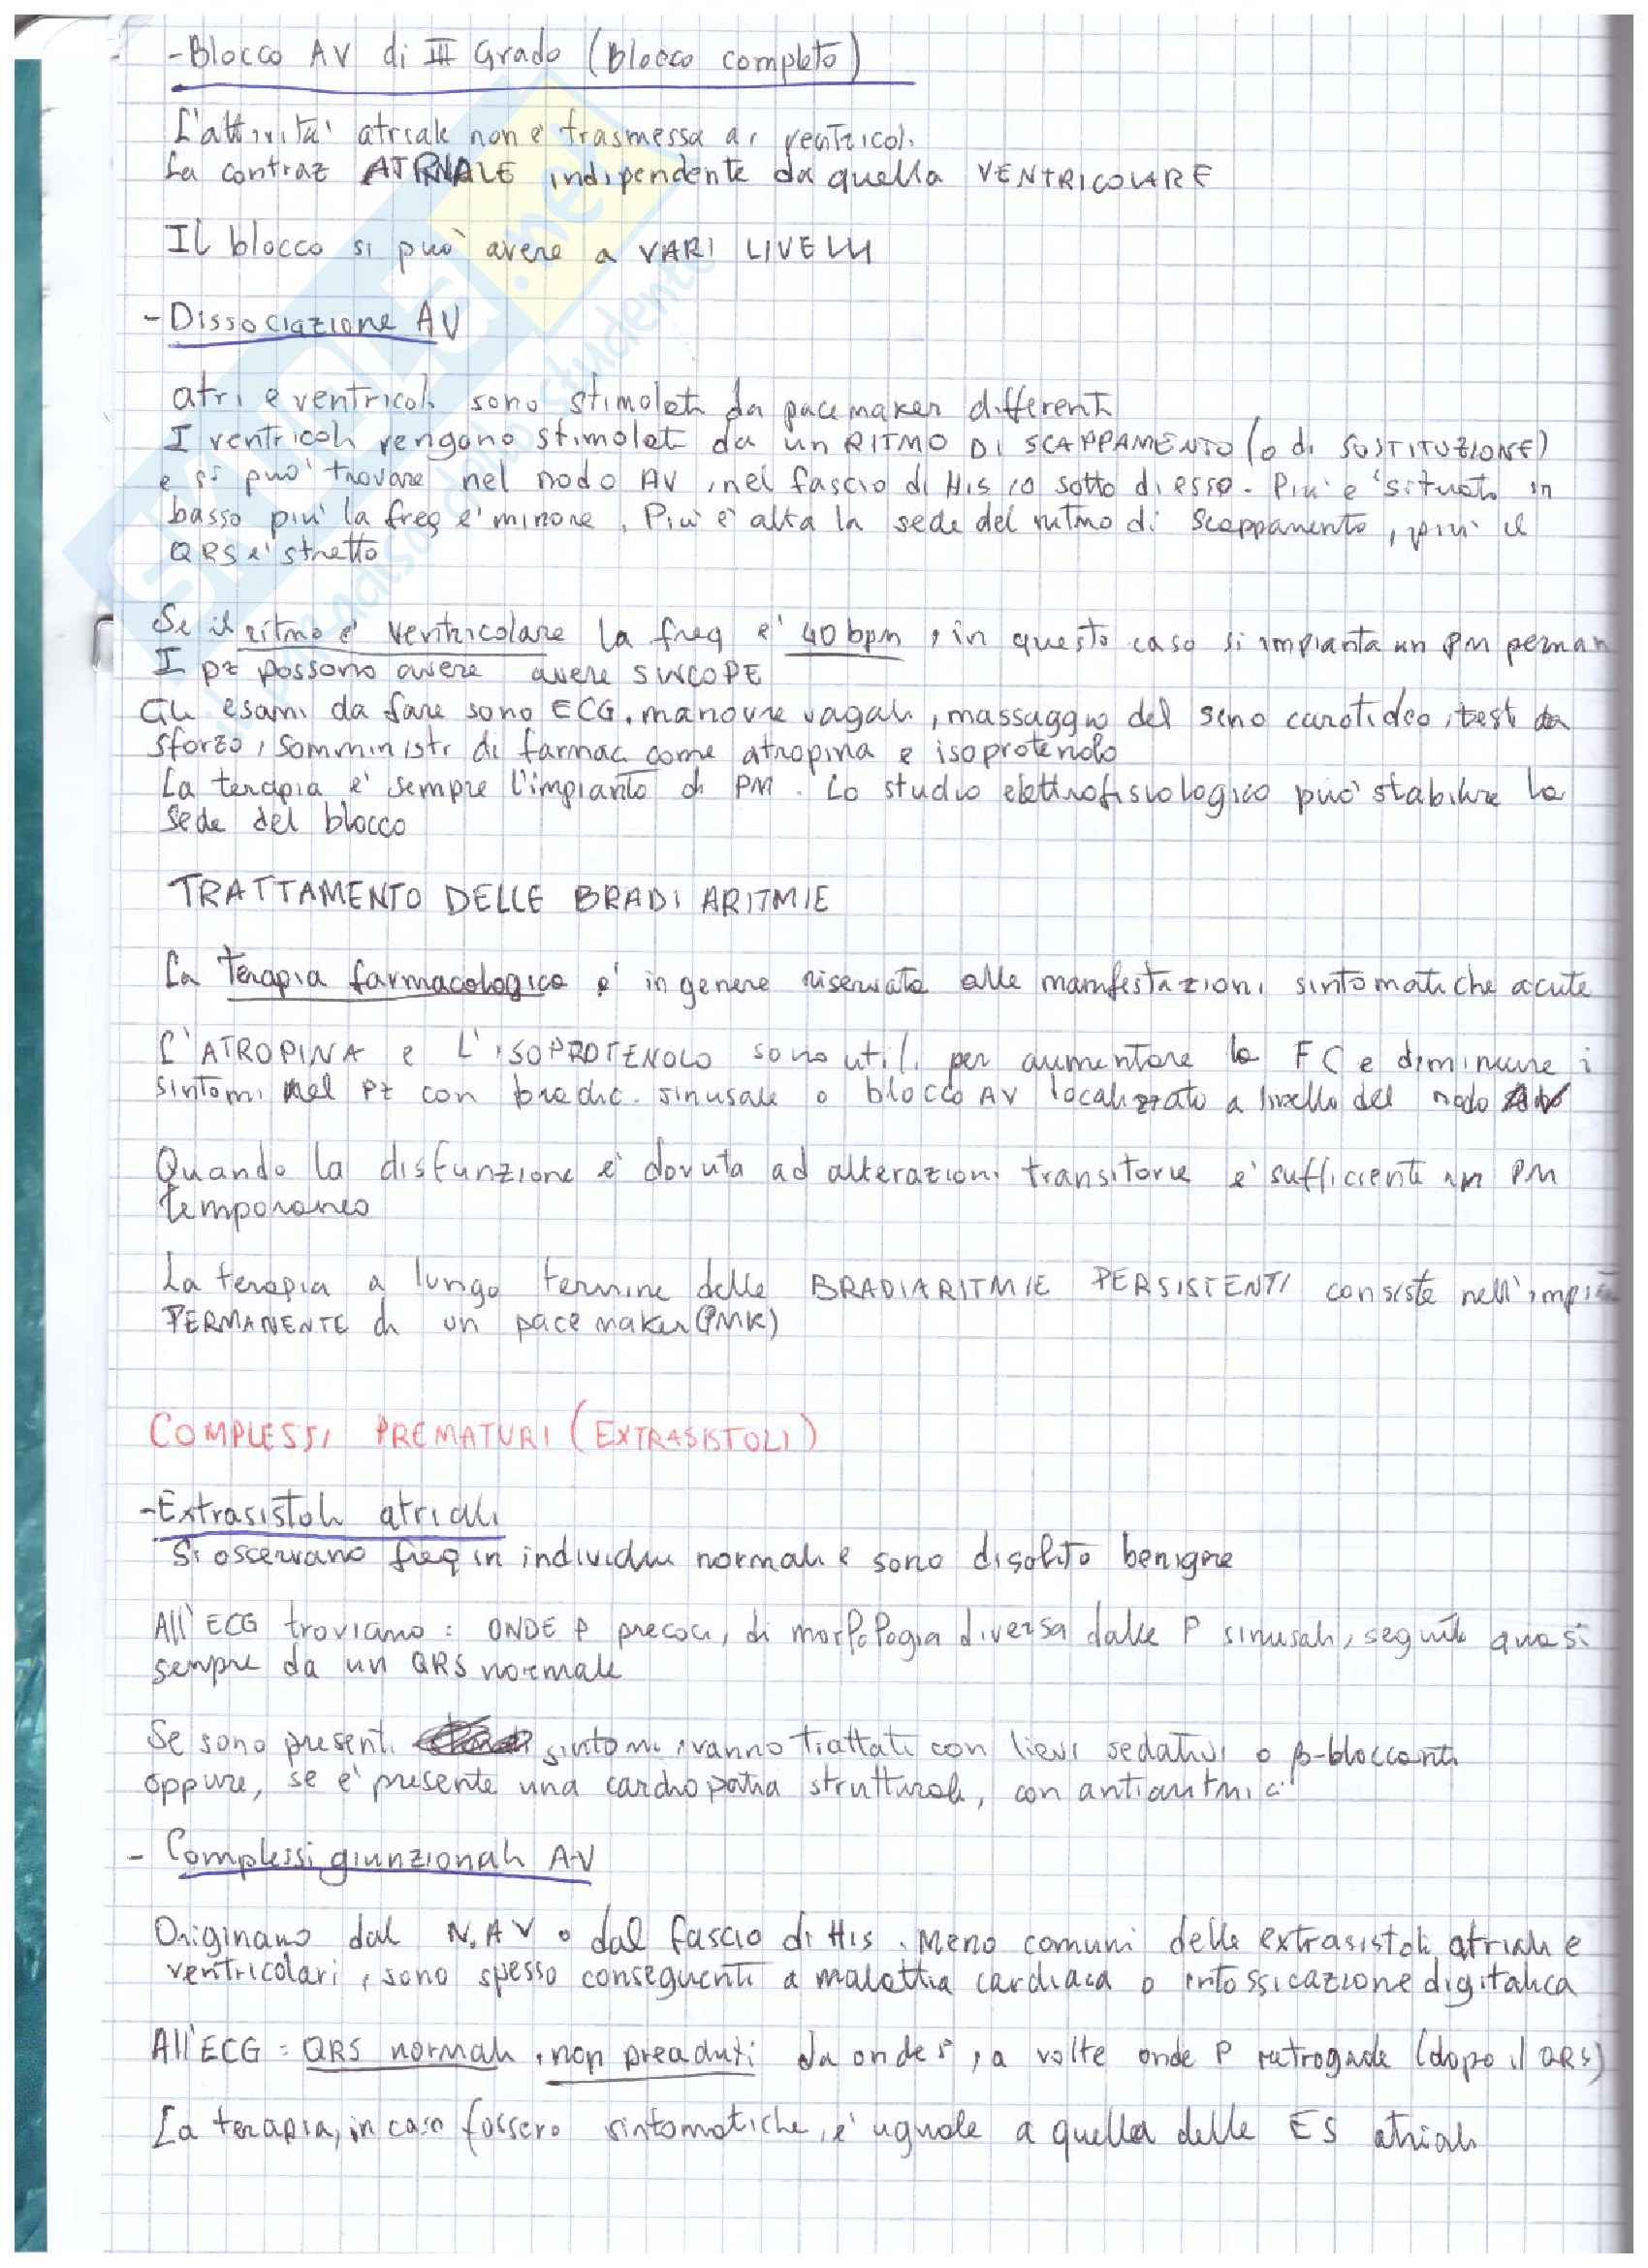 - Blocco AV di III Grado (Blocco completo)
L'attività atriale non è trasmessa ai ventricoli
La contraz ATRIALE indipendente da quella VENTRICOLARE
Il blocco si può avere a VARI LIVELLI
- Dissociazione AV
atri e ventricoli sono stimolati da pacemaker differenti
I ventricoli vengono stimolati da un RITMO DI SCAPPAMENTO (o di SOSTITUZIONE)
e si può trovare nel nodo AV, nel fascio di His, o sotto di esso. Più è situato in
basso più la freq è minore. Più è alta la sede del ritmo di scappamento, più il
QRS è stretto
Se il ritmo è ventricolare la freq è 40 bpm, in questo caso si impianta un PM perman
I pz possono avere avere SINCOPE
Gli esami da fare sono ECG, manovre vagali, massaggio del seno carotideo, test da
sforzo, somministr di farmaci come atropina e isoprotenolo
La terapia è sempre l'impianto di PM. Lo studio elettrofisiologico può stabilire la
sede del blocco
TRATTAMENTO DELLE BRADI ARITMIE
La terapia farmacologica è in genere riservata alle manifestazioni sintomatiche acute
L'ATROPINA e L'ISOPROTENOLO sono utili per aumentare la FC e diminuire i
sintomi nel pz con bradic. sinusale o blocco AV localizzato a livello del nodo AV
Quando la disfunzione è dovuta ad alterazioni transitorie è sufficiente un PM
temporaneo
La terapia a lungo termine delle BRADIARITMIE PERSISTENTI consiste nell'impia
PERMANENTE di un pace maker (PMK)
COMPLESSI PREMATURI (EXTRASISTOLI)
- Extrasistoli atriali
Si osservano freq in individui normali e sono di solito benigne
All'ECG troviamo: ONDE P precoci, di morfologia diversa dalle P sinusali, seguite quasi
sempre da un QRS normale
Se sono presenti sintomi, vanno trattati con lievi sedativi o β-bloccanti
oppure, se è presente una cardiopatia strutturale, con antiaritmici
- Complessi giunzionali AV
Originano dal N.AV o dal fascio di His. Meno comuni delle extrasistoli atriali e
ventricolari, sono spesso conseguenti a malattia cardiaca o intossicazione digitalica
All'ECG: QRS normali, non preceduti da onde P, a volte onde P retrograde (dopo il QRS)
La terapia, in caso fossero sintomatiche, è uguale a quella delle ES atriali